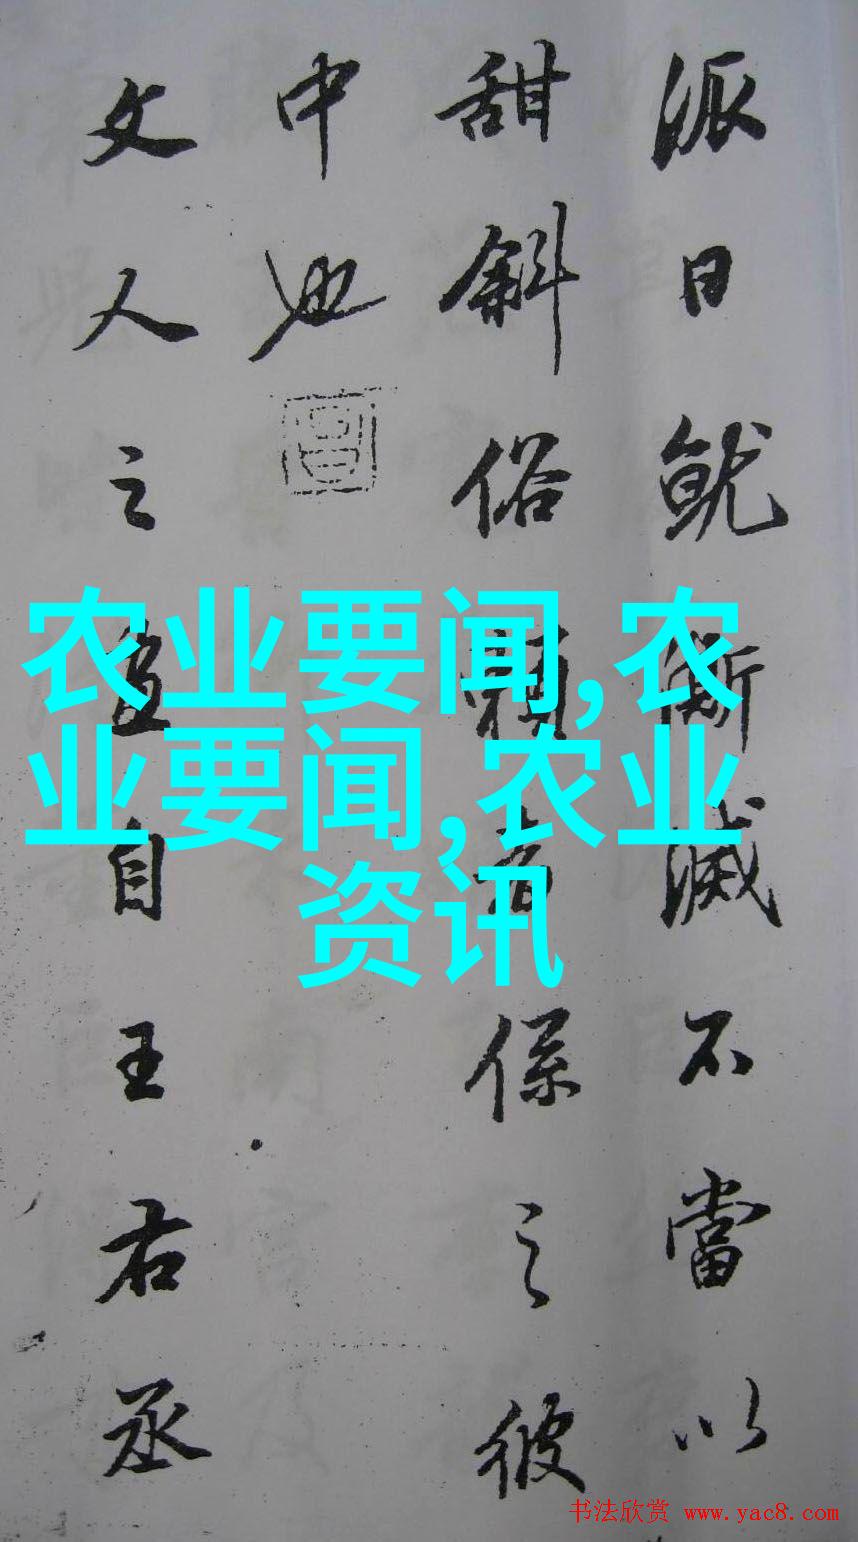 派日就澌滅不當以
甜斜俗賴者係之彼
中也
文人之畫自王右丞
农业要闻,农
业要闻,农业
资讯
书法欣赏 www.yac8.com